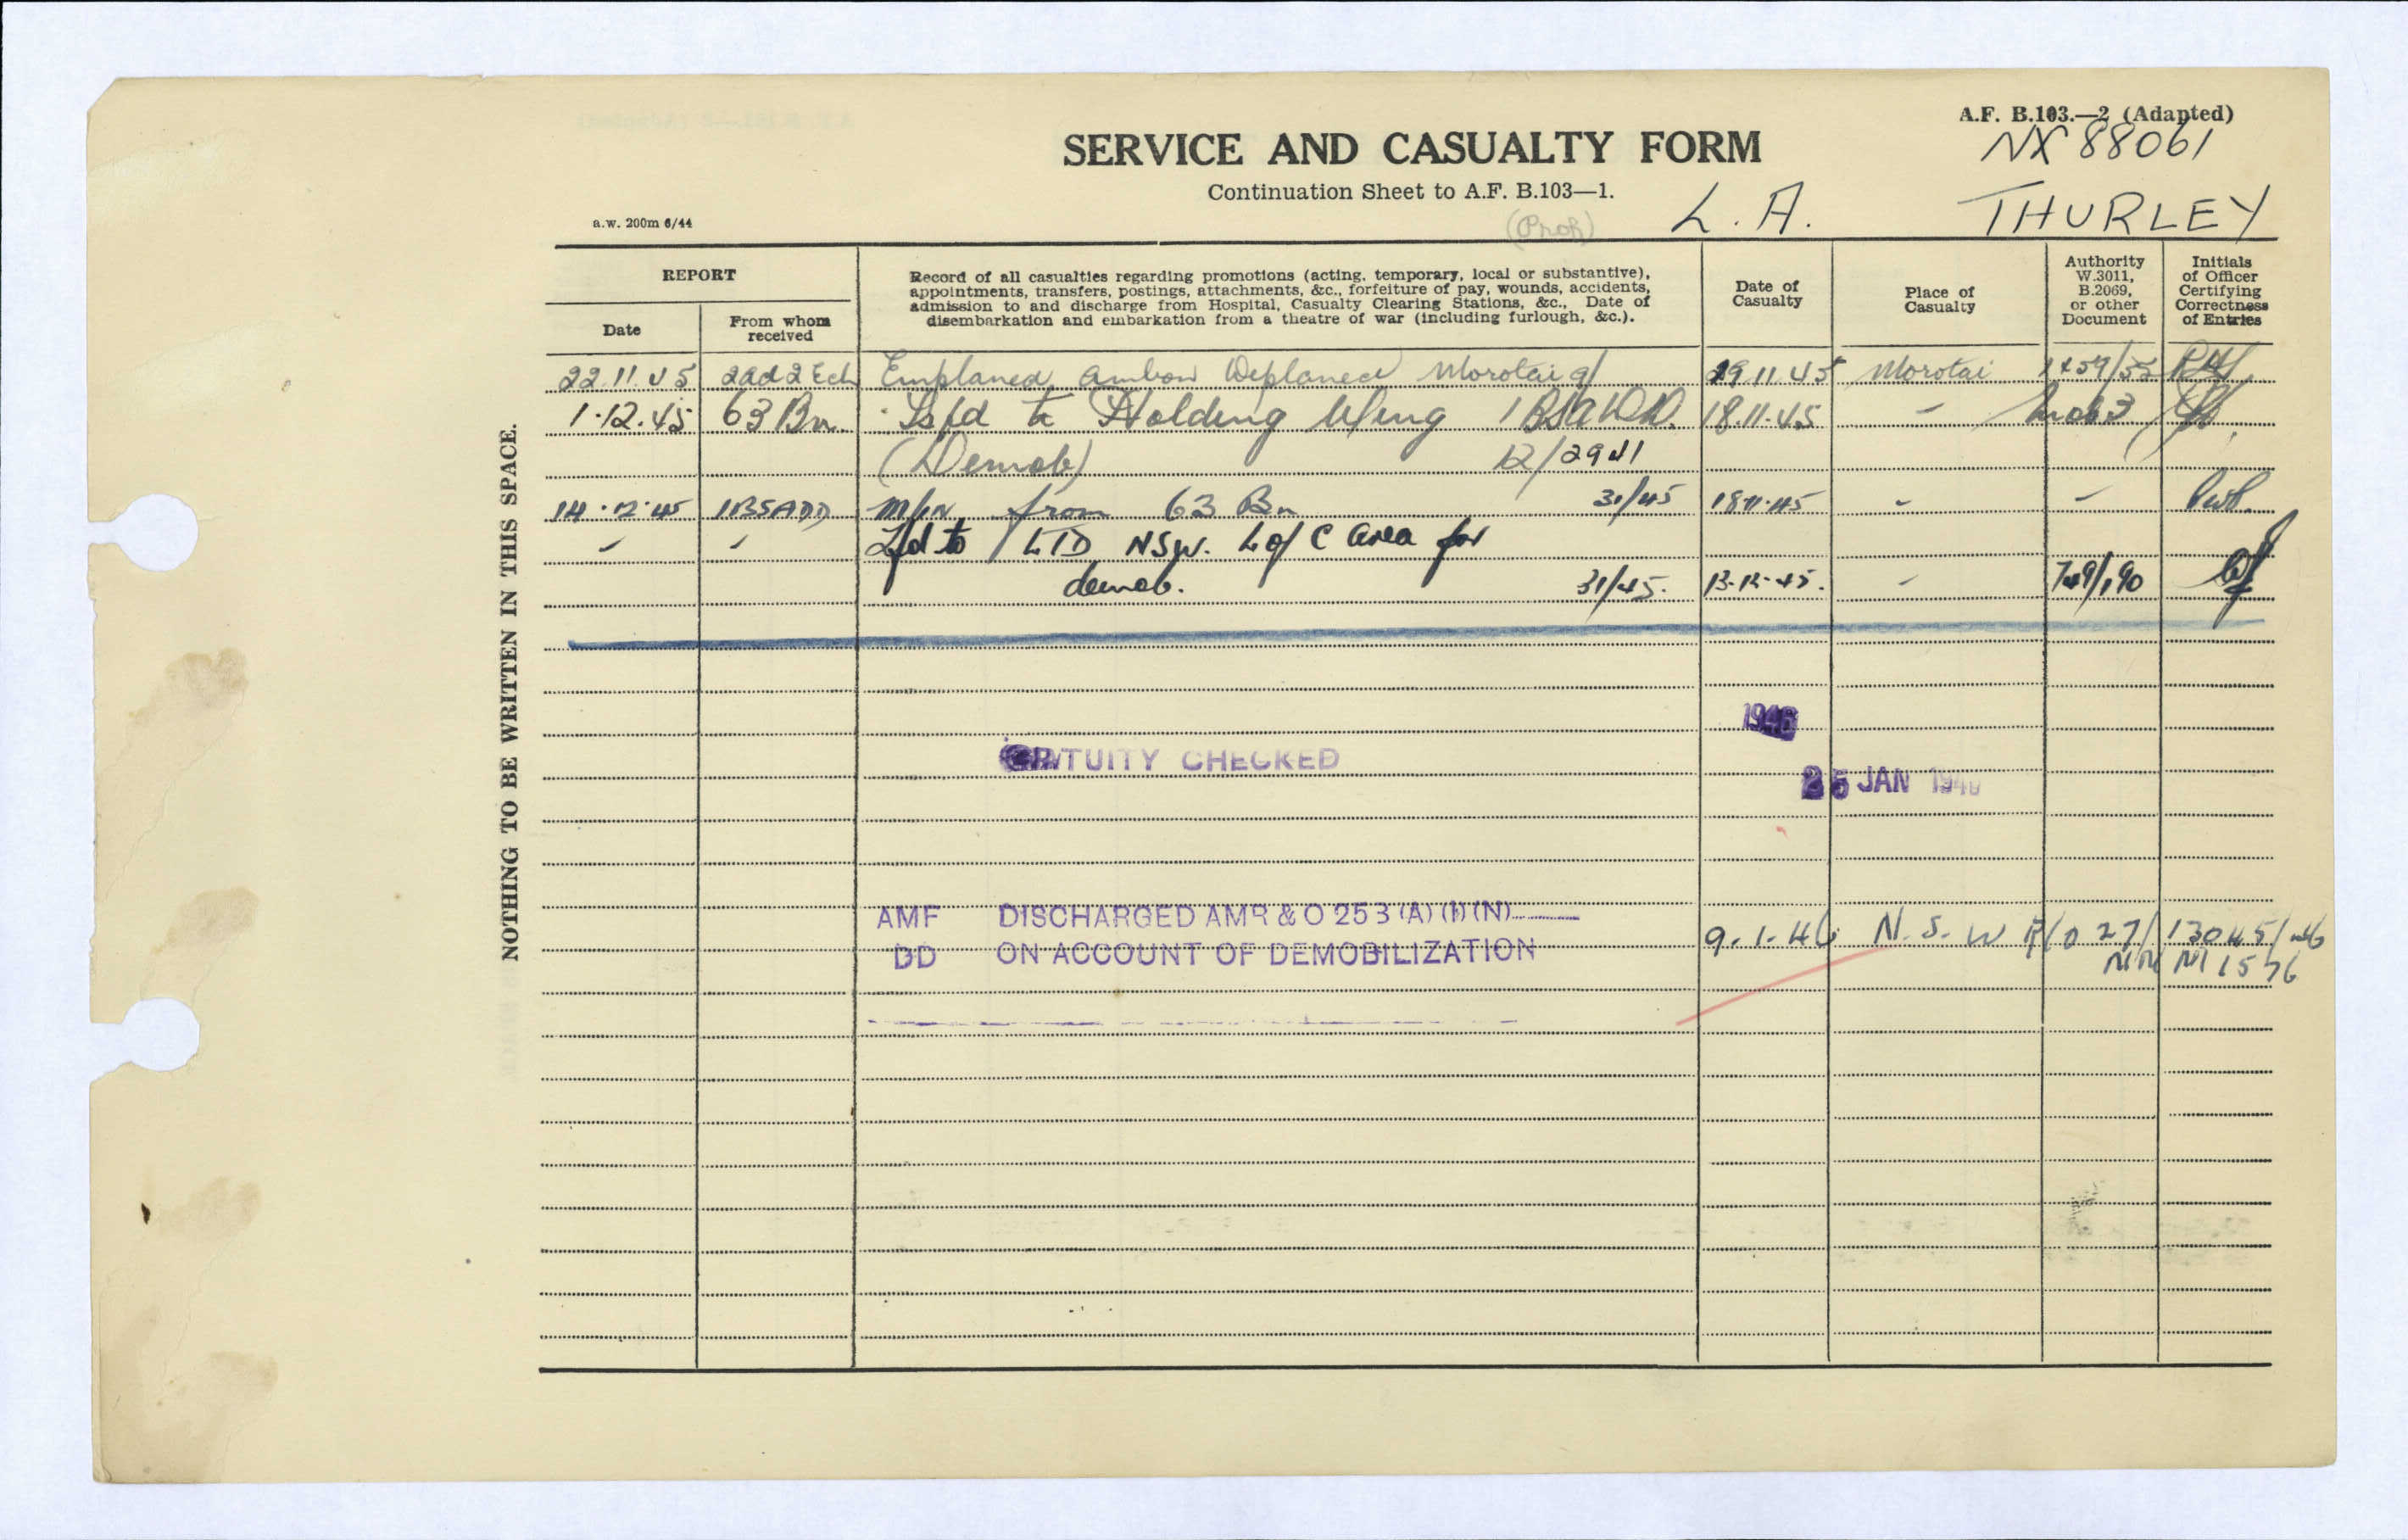 A.F. B.103.—2 (Adapted)
NX 88061
SERVICE AND CASUALTY FORM
Continuation Sheet to A.F. B.103—1.
L. A. THURLEY
a.w. 200m 6/44
REPORT
Date
From whom received
Record of all casualties regarding promotions (acting, temporary, local or substantive),
appointments, transfers, postings, attachments, &c., forfeiture of pay, wounds, accidents,
admission to and discharge from Hospital, Casualty Clearing Stations, &c., Date of
disembarkation and embarkation from a theatre of war (including furlough, &c.).
Date of Casualty
Place of Casualty
Authority W.3011, B.2069, or other Document
Initials of Officer Certifying Correctness of Entries
NOTHING TO BE WRITTEN IN THIS SPACE.
22.11.45 2Ech Emplaned Ambon Deplaned Morotai 19.11.45 Morotai
1.12.45 63 Bn. to Holding Wing 1 BSADD. 18.11.45 -
(Demob) 12/2941
14.12.45 1BSADD M/in from 63 Bn 31/45 18.11.45 - -
- - to LTD NSW. L of C Area for
demob. 31/45. 13.12.45. - 749/190
1946
TUITY CHECKED
25 JAN 1946
AMF DISCHARGED AMR & O 253 (A) (1) (N)
DD ON ACCOUNT OF DEMOBILIZATION 9.1.46 N.S.W R/O 27/13045/46